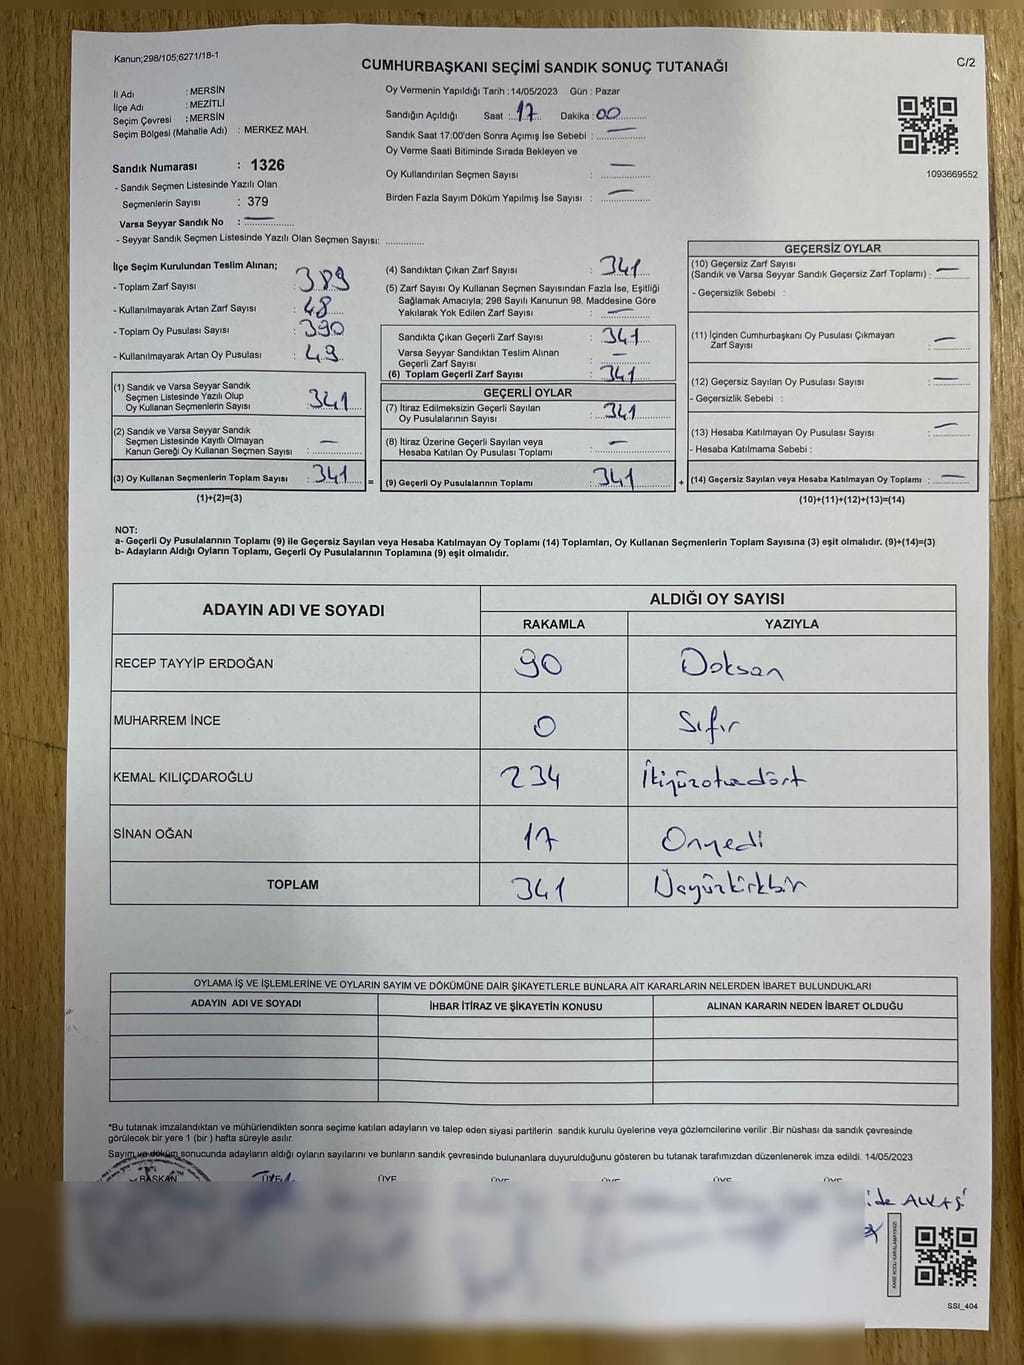 Kanun;298/105;6271/18-1
CUMHURBAŞKANI SEÇİMİ SANDIK SONUÇ TUTANAĞI
C/2
İl Adı : MERSİN
İlçe Adı : MEZİTLİ
Seçim Çevresi : MERSİN
Seçim Bölgesi (Mahalle Adı) : MERKEZ MAH.
Sandık Numarası : 1326
- Sandık Seçmen Listesinde Yazılı Olan
Seçmenlerin Sayısı : 379
Varsa Seyyar Sandık No : —
- Seyyar Sandık Seçmen Listesinde Yazılı Olan Seçmen Sayısı: ............
Oy Vermenin Yapıldığı Tarih : 14/05/2023 Gün : Pazar
Sandığın Açıldığı Saat : 17 Dakika : 00
Sandık Saat 17:00'den Sonra Açımış İse Sebebi : —
Oy Verme Saati Bitiminde Sırada Bekleyen ve
Oy Kullandırılan Seçmen Sayısı : —
Birden Fazla Sayım Döküm Yapılmış İse Sayısı : —
1093669552
İlçe Seçim Kurulundan Teslim Alınan;
- Toplam Zarf Sayısı : 389
- Kullanılmayarak Artan Zarf Sayısı : 48
- Toplam Oy Pusulası Sayısı : 390
- Kullanılmayarak Artan Oy Pusulası : 49
(1) Sandık ve Varsa Seyyar Sandık
Seçmen Listesinde Yazılı Olup
Oy Kullanan Seçmenlerin Sayısı : 341
(2) Sandık ve Varsa Seyyar Sandık
Seçmen Listesinde Kayıtlı Olmayan
Kanun Gereği Oy Kullanan Seçmen Sayısı : —
(3) Oy Kullanan Seçmenlerin Toplam Sayısı : 341 =
(1)+(2)=(3)
(4) Sandıktan Çıkan Zarf Sayısı : 341
(5) Zarf Sayısı Oy Kullanan Seçmen Sayısından Fazla İse, Eşitliği
Sağlamak Amacıyla; 298 Sayılı Kanunun 98. Maddesine Göre
Yakılarak Yok Edilen Zarf Sayısı : —
Sandıkta Çıkan Geçerli Zarf Sayısı : 341
Varsa Seyyar Sandıktan Teslim Alınan
Geçerli Zarf Sayısı : —
(6) Toplam Geçerli Zarf Sayısı : 341
GEÇERLİ OYLAR
(7) İtiraz Edilmeksizin Geçerli Sayılan
Oy Pusulalarının Sayısı : 341
(8) İtiraz Üzerine Geçerli Sayılan veya
Hesaba Katılan Oy Pusulası Toplamı : —
(9) Geçerli Oy Pusulalarının Toplamı : 341 +
GEÇERSİZ OYLAR
(10) Geçersiz Zarf Sayısı
(Sandık ve Varsa Seyyar Sandık Geçersiz Zarf Toplamı) : —
- Geçersizlik Sebebi :
(11) İçinden Cumhurbaşkanı Oy Pusulası Çıkmayan
Zarf Sayısı : —
(12) Geçersiz Sayılan Oy Pusulası Sayısı : —
- Geçersizlik Sebebi :
(13) Hesaba Katılmayan Oy Pusulası Sayısı : —
- Hesaba Katılmama Sebebi :
(14) Geçersiz Sayılan veya Hesaba Katılmayan Oy Toplamı : —
(10)+(11)+(12)+(13)=(14)
NOT:
a- Geçerli Oy Pusulalarının Toplamı (9) ile Geçersiz Sayılan veya Hesaba Katılmayan Oy Toplamı (14) Toplamları, Oy Kullanan Seçmenlerin Toplam Sayısına (3) eşit olmalıdır. (9)+(14)=(3)
b- Adayların Aldığı Oyların Toplamı, Geçerli Oy Pusulalarının Toplamına (9) eşit olmalıdır.
ADAYIN ADI VE SOYADI ALDIĞI OY SAYISI
RAKAMLA YAZIYLA
RECEP TAYYİP ERDOĞAN 90 Doksan
MUHARREM İNCE 0 Sıfır
KEMAL KILIÇDAROĞLU 234 İkiyüzotuzdört
SİNAN OĞAN 17 Onyedi
TOPLAM 341 Üçyüzkırkbir
OYLAMA İŞ VE İŞLEMLERİNE VE OYLARIN SAYIM VE DÖKÜMÜNE DAİR ŞİKAYETLERLE BUNLARA AİT KARARLARIN NELERDEN İBARET BULUNDUKLARI
ADAYIN ADI VE SOYADI İHBAR İTİRAZ VE ŞİKAYETİN KONUSU ALINAN KARARIN NEDEN İBARET OLDUĞU
*Bu tutanak imzalandıktan ve mühürlendikten sonra seçime katılan adayların ve talep eden siyasi partilerin sandık kurulu üyelerine veya gözlemcilerine verilir .Bir nüshası da sandık çevresinde
görülecek bir yere 1 (bir ) hafta süreyle asılır.
Sayım ve döküm sonucunda adayların aldığı oyların sayılarını ve bunların sandık çevresinde bulunanlara duyurulduğunu gösteren bu tutanak tarafımızdan düzenlenerek imza edildi. 14/05/2023
BAŞKAN ÜYE ÜYE ÜYE ÜYE ÜYE
SSI_404